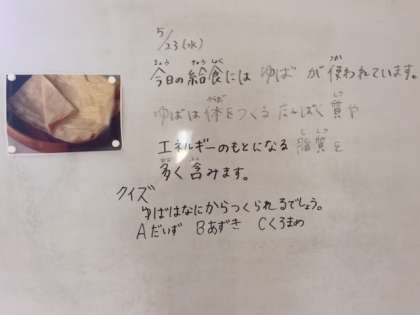 5/23(水)
今日の給食には ゆば が使われています。
ゆばは体をつくるたんぱく質や
エネルギーのもとになる 脂質を
多く含みます。
クイズ
ゆばはなにからつくられるでしょう。
Aだいず Bあずき Cくろまめ